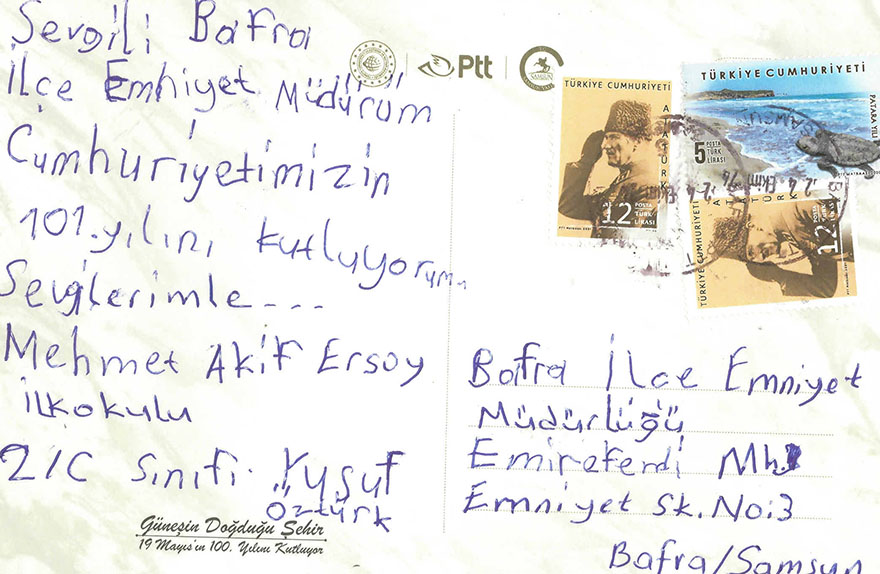 Sevgili Bafra
İlçe Emhiyet Müdürüm
Cumhuriyetimizin
101.yılını kutluyorum
Sevgilerimle...
Mehmet Akif Ersoy
İlkokulu
2/C Sınıfı. Yusuf
Öztürk
Güneşin Doğduğu Şehir
19 Mayıs'ın 100. Yılını Kutluyor
Ptt
TÜRKİYE CUMHURİYETİ
ATATÜRK
12 POSTA TÜRK LİRASI
TÜRKİYE CUMHURİYETİ
PATARA YILI
5 POSTA TÜRK LİRASI
TÜRKİYE CUMHURİYETİ
ATATÜRK
12
Bafra İlçe Emniyet
Müdürlüğü
Emirefendi Mh.
Emniyet Sk. No:3
Bafra/Samsun